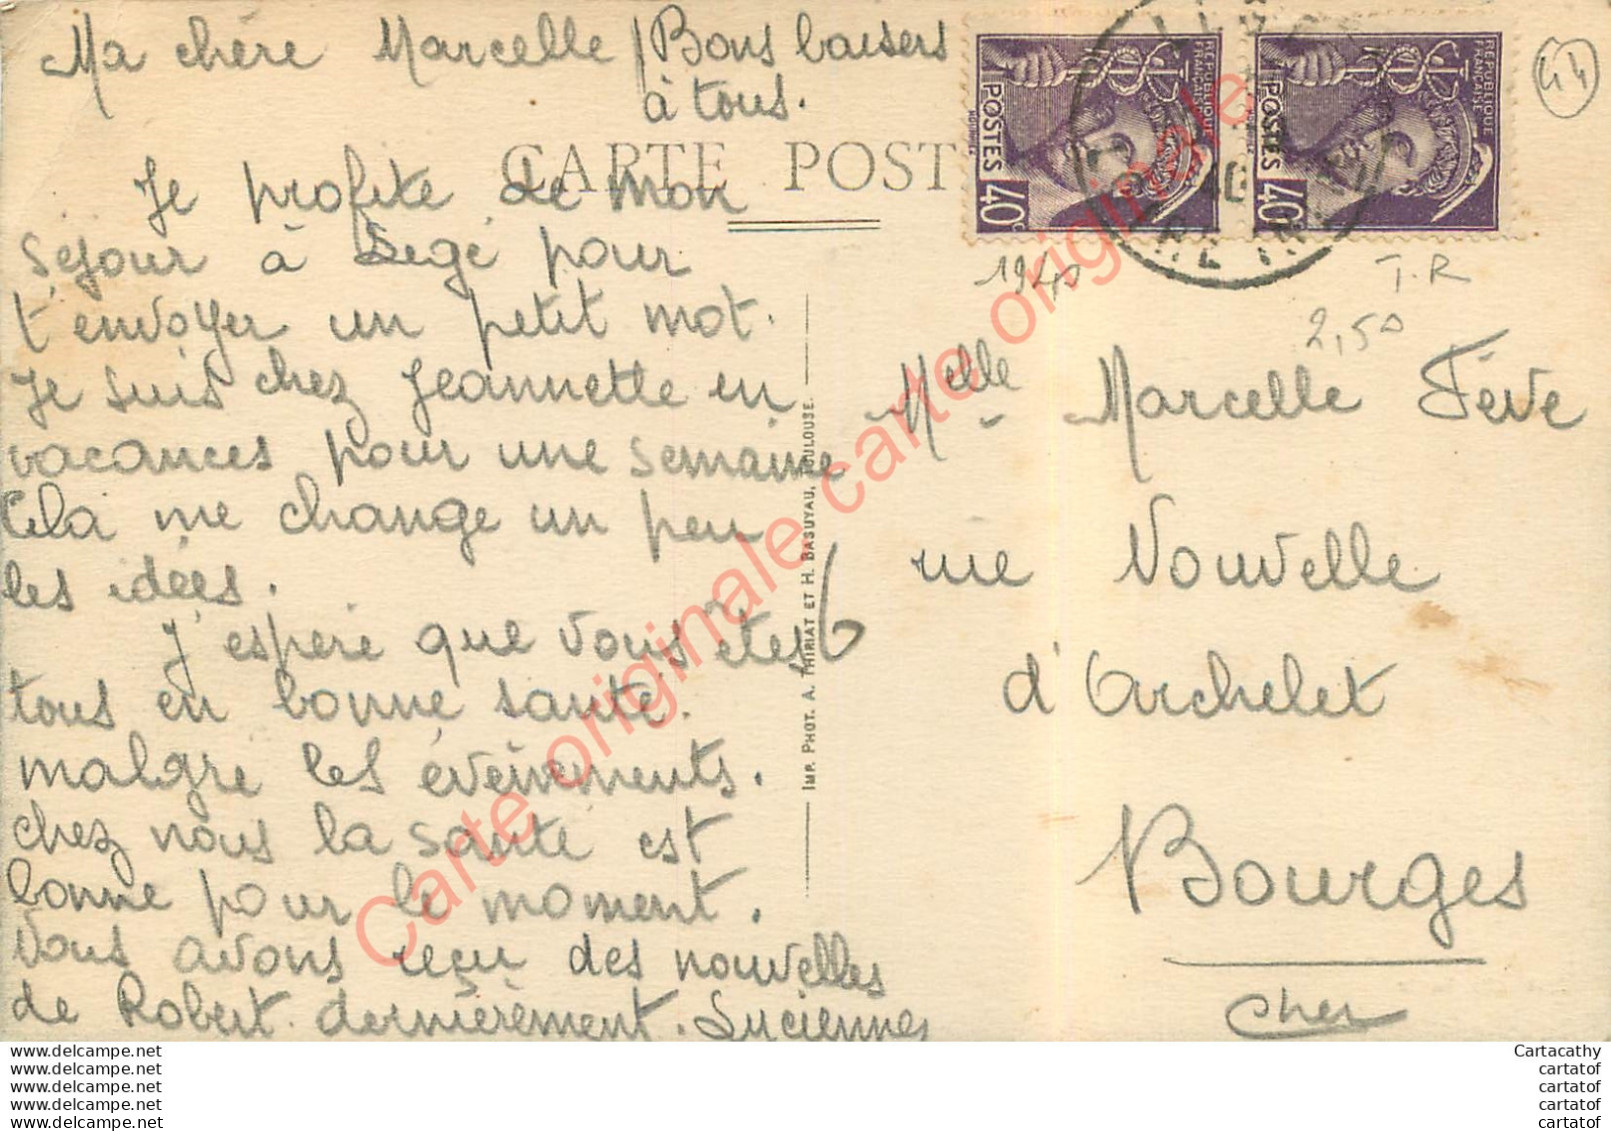 Ma chère Marcelle / Bons baisers
à tous.
CARTE POST
Je profite de mon
séjour à Legé pour
t'envoyer un petit mot.
Je suis chez Jeannette en
vacances pour une semaine
Cela me change un peu
les idées.
J'espère que vous êtes
tous en bonne santé
malgré les évènements.
chez nous la santé est
bonne pour le moment.
Nous avons reçu des nouvelles
de Robert dernièrement. Lucienne
IMP. PHOT. A. THIRIAT ET H. BASUYAU, TOULOUSE.
6
RÉPUBLIQUE FRANÇAISE
POSTES
40c
RÉPUBLIQUE FRANÇAISE
POSTES
40c
44
1940
T.R
2,50
Melle Marcelle Fève
rue Nouvelle
d'Archelet
Bourges
Cher
Carte originale carte originale carte originale
www.delcampe.net
www.delcampe.net
www.delcampe.net
www.delcampe.net
www.delcampe.net
Cartacathy
cartatof
cartatof
cartatof
cartatof